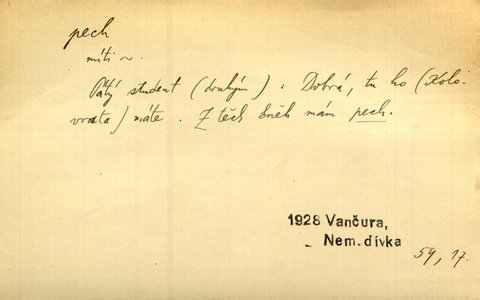 pech
míti ~.
Pátý student (druhým) : Dobrá, tu ho (Kolo-
vrata) máte. Z těch kněh mám pech.
1928 Vančura,
Nem. dívka
59, 17.